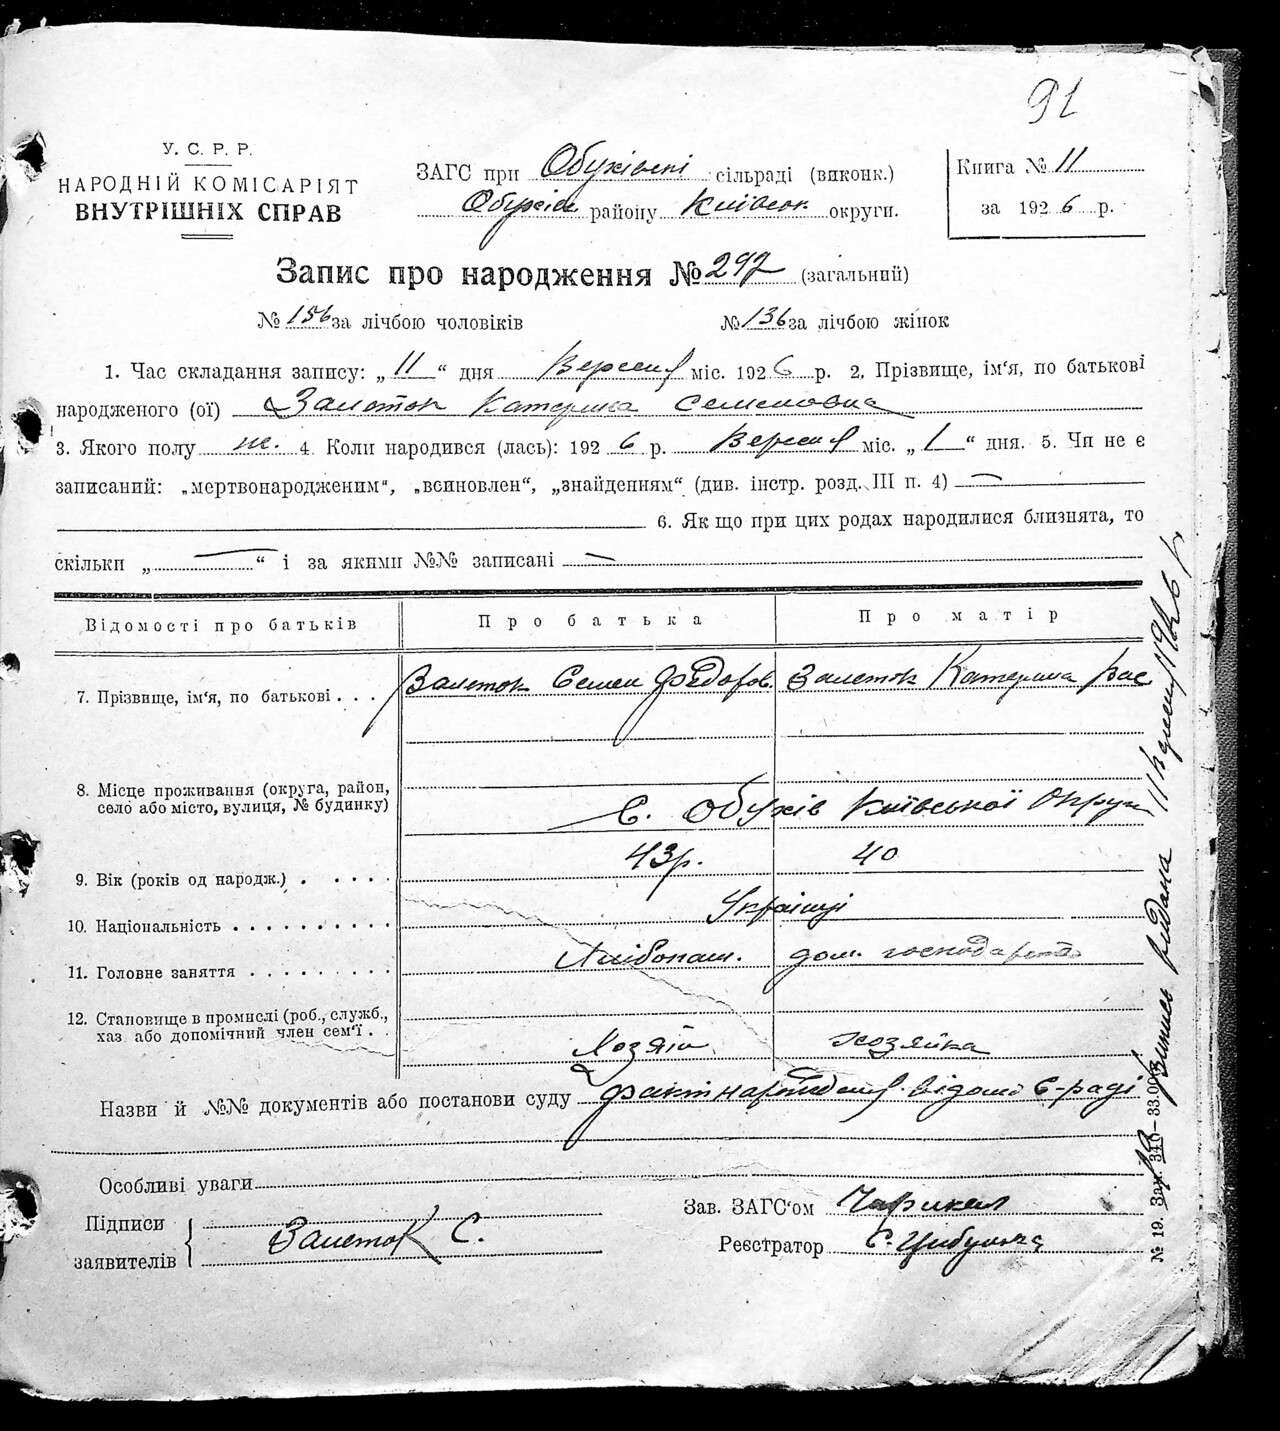 91
У. С. Р. Р.
НАРОДНІЙ КОМІСАРІЯТ
ВНУТРІШНІХ СПРАВ
ЗАГС при Обухівскі сільраді (виконк.)
Обухів району Київськ округи.
Книга № 11
за 1926 р.
Запис про народження № 292 (загальний)
№ 156 за лічбою чоловіків № 136 за лічбою жінок
1. Час складання запису: „11“ дня Вересня міс. 1926 р. 2. Прізвище, ім‘я, по батькові
народженого (ої) Залеток Катерина Семеновна
3. Якого полу ж. 4. Коли народився (лась): 1926 р. Вересня міс. „1“ дня. 5. Чи не є
записаний: „мертвонародженим“, „всиновлен“, „знайденням“ (див. інстр. розд. III п. 4) —
6. Як що при цих родах народилися близнята, то
скільки „—“ і за якими №№ записані —
Відомості про батьків Про батька Про матір
7. Прізвище, ім‘я, по батькові . . . Залеток Семен Федоров. Залеток Катерина Вас
8. Місце проживання (округа, район,
село або місто, вулиця, № будинку) С. Обухів Київської Округи
9. Вік (років од народж.) . . . . . 43р. 40
10. Національність . . . . . . . . . . Українці
11. Головне заняття . . . . . . . . . Хлібопаш. дом. господарство
12. Становище в промислі (роб., служб.,
хаз. або допомічний член сем‘ї . . Хозяїн хозяйка
Назви й №№ документів або постанови суду факт народження відомо С-раді
Особливі уваги
Підписи
заявителів Залеток С.
Зав. ЗАГС‘ом
Реєстратор С. Цибулька
№ 19. Зак. 346—33.000
Випись видана 11 Вересня 1926 р.